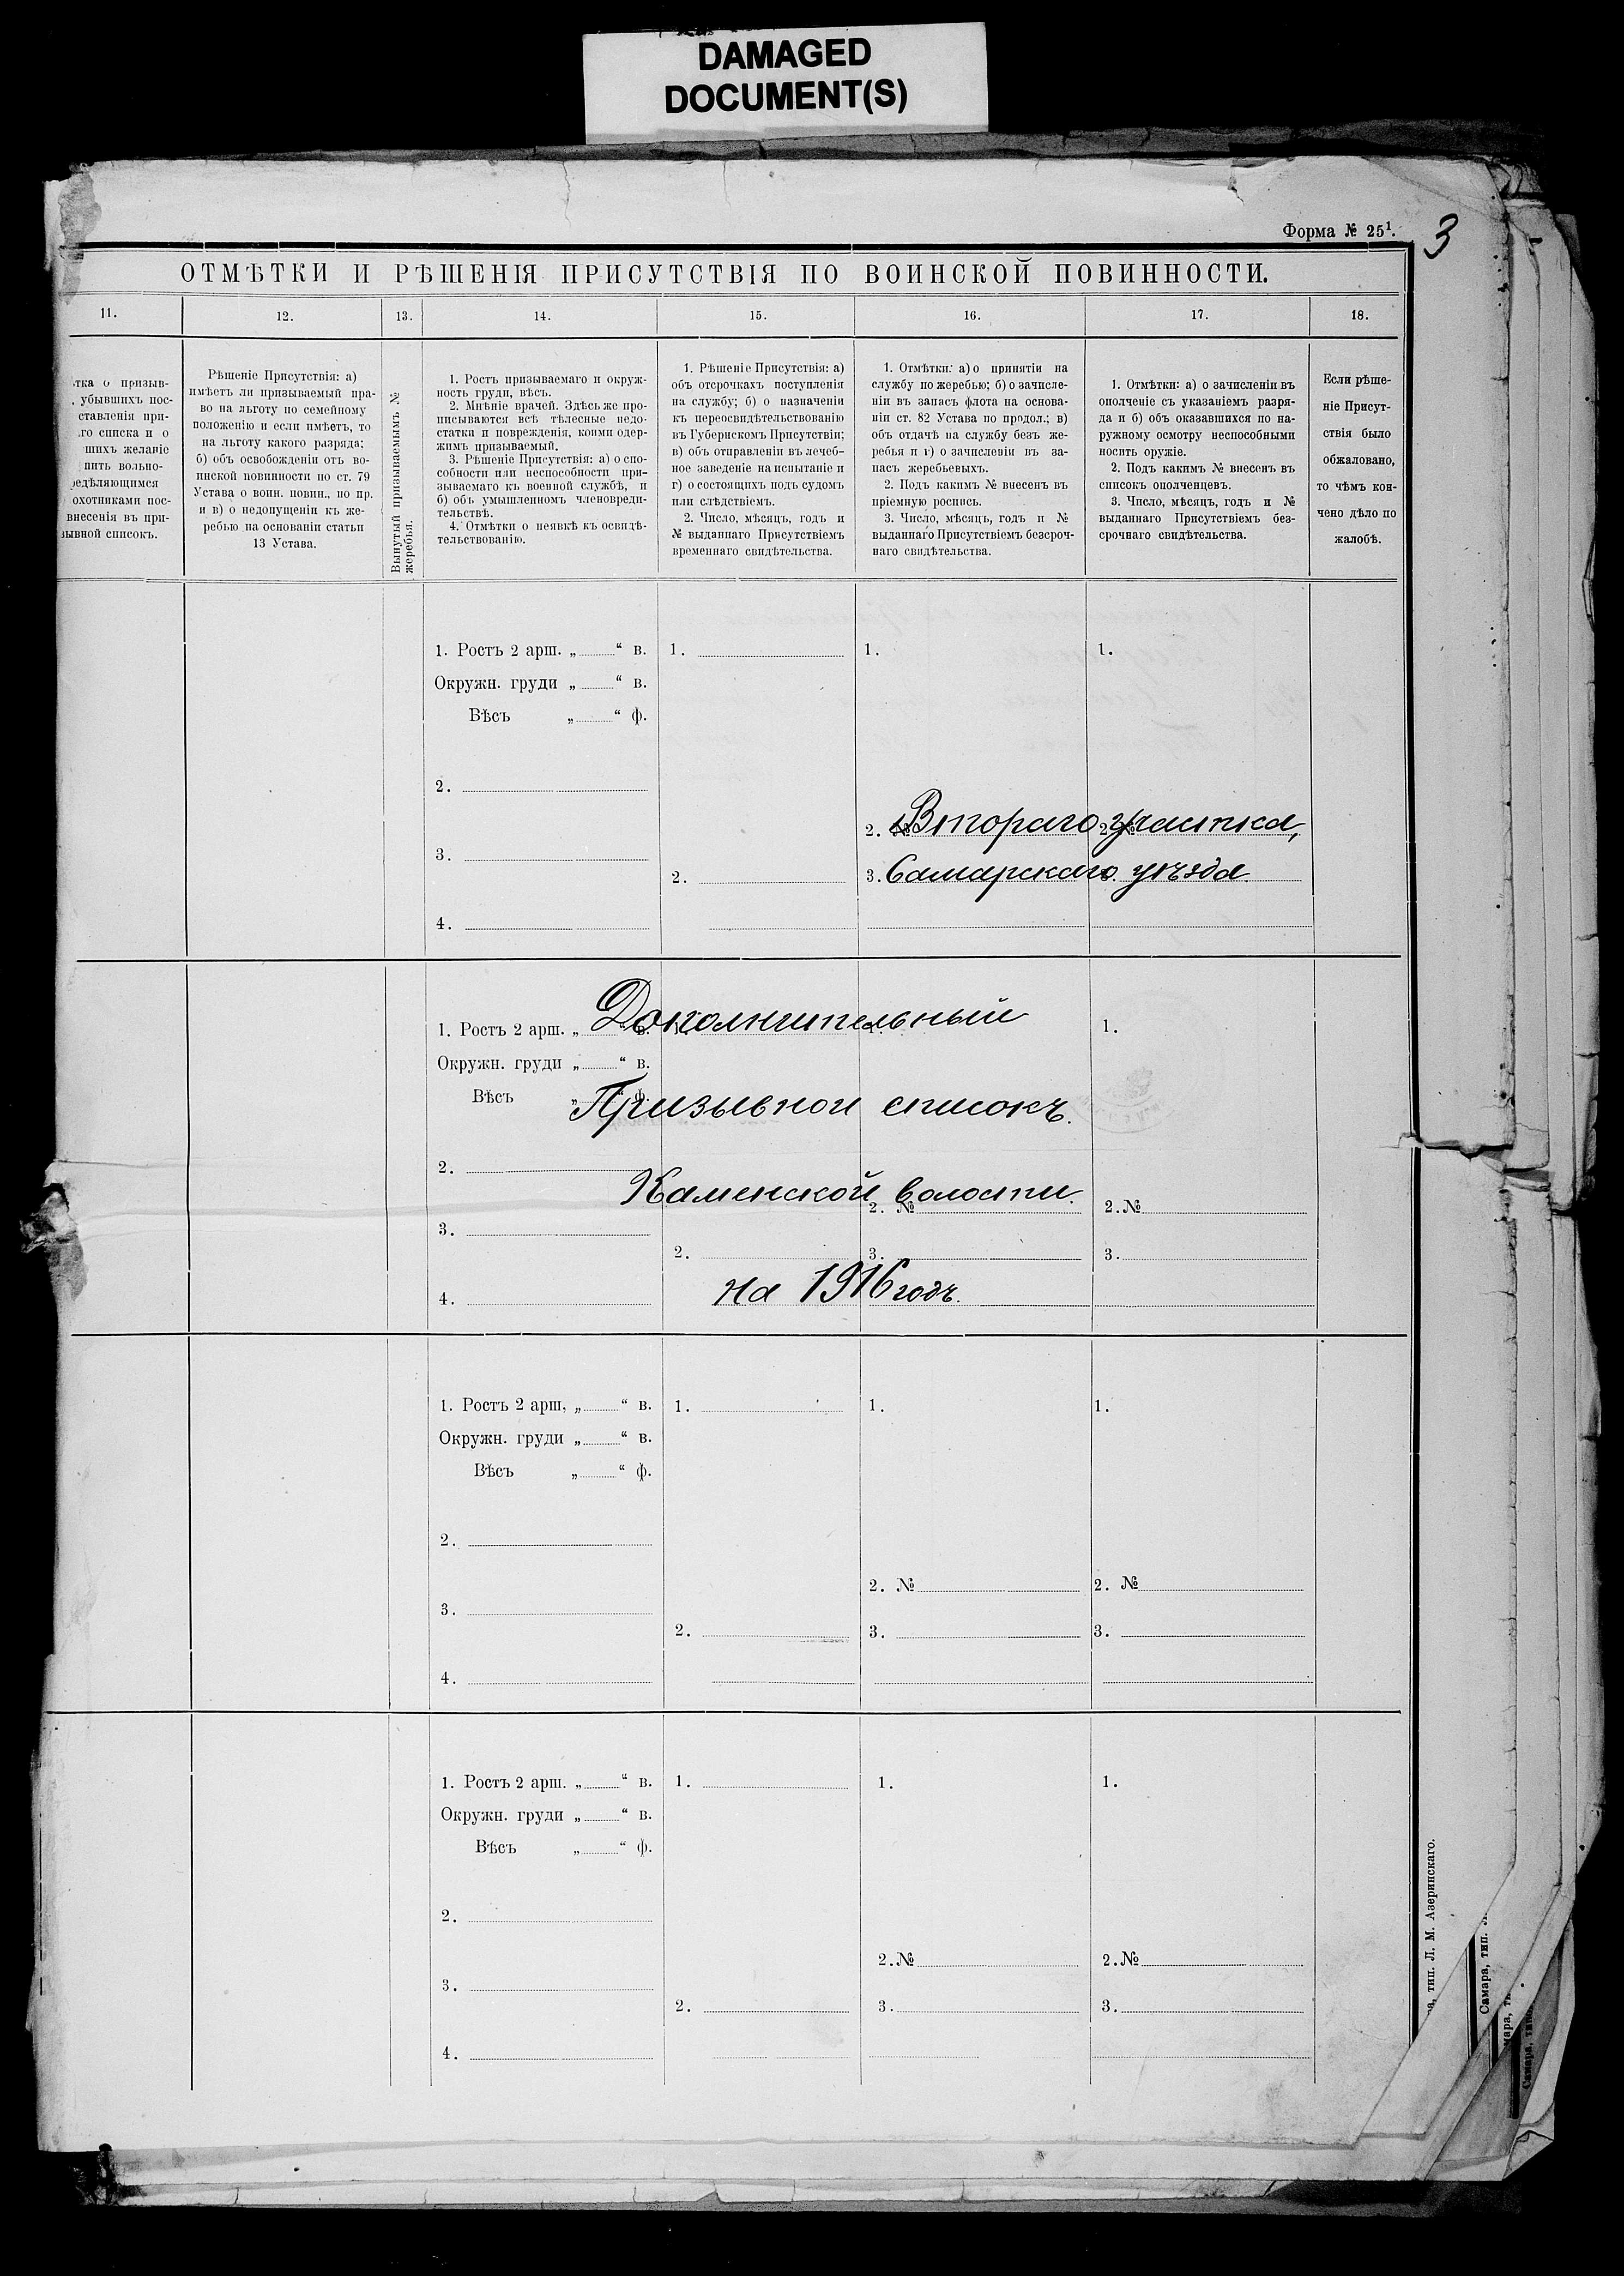 DAMAGED
DOCUMENT(S)
Форма № 25¹.
3
ОТМѢТКИ И РѢШЕНІЯ ПРИСУТСТВІЯ ПО ВОИНСКОЙ ПОВИННОСТИ.
11. 12. 13. 14. 15. 16. 17. 18.
тка о призыв-
убывшихъ пос-
ставленія при-
го списка и о
шихъ желаніе
пить вольно-
редѣляющимся
охотниками пос-
внесенія въ при-
ывной списокъ.
Рѣшеніе Присутствія: а)
имѣетъ ли призываемый пра-
во на льготу по семейному
положенію и если имѣетъ, то
на льготу какого разряда;
б) объ освобожденіи отъ во-
инской повинности по ст. 79
Устава о воин. повин., по пр.
и в) о недопущеніи къ же-
ребью на основаніи статьи
13 Устава.
Вынутый призываемымъ №
жеребья.
1. Ростъ призываемаго и окруж-
ность груди, вѣсъ.
2. Мнѣніе врачей. Здѣсь же про-
писываются всѣ тѣлесные недо-
статки и поврежденія, коими одер-
жимъ призываемый.
3. Рѣшеніе Присутствія: а) о спо-
собности или неспособности при-
зываемаго къ военной службѣ, и
б) объ умышленномъ членовреди-
тельствѣ.
4. Отмѣтки о неявкѣ къ освидѣ-
тельствованію.
1. Рѣшеніе Присутствія: а)
объ отсрочкахъ поступленія
на службу; б) о назначеніи
къ переосвидѣтельствованію
въ Губернскомъ Присутствіи;
в) объ отправленіи въ лечеб-
ное заведеніе на испытаніе и
г) о состоящихъ подъ судомъ
или слѣдствіемъ.
2. Число, мѣсяцъ, годъ и
№ выданнаго Присутствіемъ
временнаго свидѣтельства.
1. Отмѣтки: а) о принятіи на
службу по жеребью; б) о зачисле-
ніи въ запасъ флота на основа-
ніи ст. 82 Устава по продол.; в)
объ отдачѣ на службу безъ же-
ребья и г) о зачисленіи въ за-
пасъ жеребьевыхъ.
2. Подъ какимъ № внесенъ въ
пріемную роспись.
3. Число, мѣсяцъ, годъ и №
выданнаго Присутствіемъ безсроч-
наго свидѣтельства.
1. Отмѣтки: а) о зачисленіи въ
ополченіе съ указаніемъ разря-
да и б) объ оказавшихся по на-
ружному осмотру неспособными
носить оружіе.
2. Подъ какимъ № внесенъ въ
списокъ ополченцевъ.
3. Число, мѣсяцъ, годъ и №
выданнаго Присутствіемъ без-
срочнаго свидѣтельства.
Если рѣше-
ніе Присут-
ствія было
обжаловано,
то чѣмъ кон-
чено дѣло по
жалобѣ.
1. Ростъ 2 арш. „ “ в. 1. 1. 1.
Окружн. груди „ “ в.
Вѣсъ „ “ ф.
2.
2. № Второго участка, 2. №
3.
2. 3. Самарскаго уѣзда.
4.
1. Ростъ 2 арш. „ Дополнительный 1.
Окружн. груди „ “ в.
Вѣсъ „ Призывной списокъ.
2.
Каменской волости.
2. № 2. №
3.
2. 3. 3.
4. на 1916 годъ.
1. Ростъ 2 арш, „ “ в. 1. 1. 1.
Окружн. груди „ “ в.
Вѣсъ „ “ ф.
2.
2. № 2. №
3.
2. 3. 3.
4.
1. Ростъ 2 арш. „ “ в. 1. 1. 1.
Окружн. груди „ “ в.
Вѣсъ „ “ ф.
2.
2. № 2. №
3.
2. 3. 3.
4.
тип. Л. М. Азеринскаго.
Самара, тип.